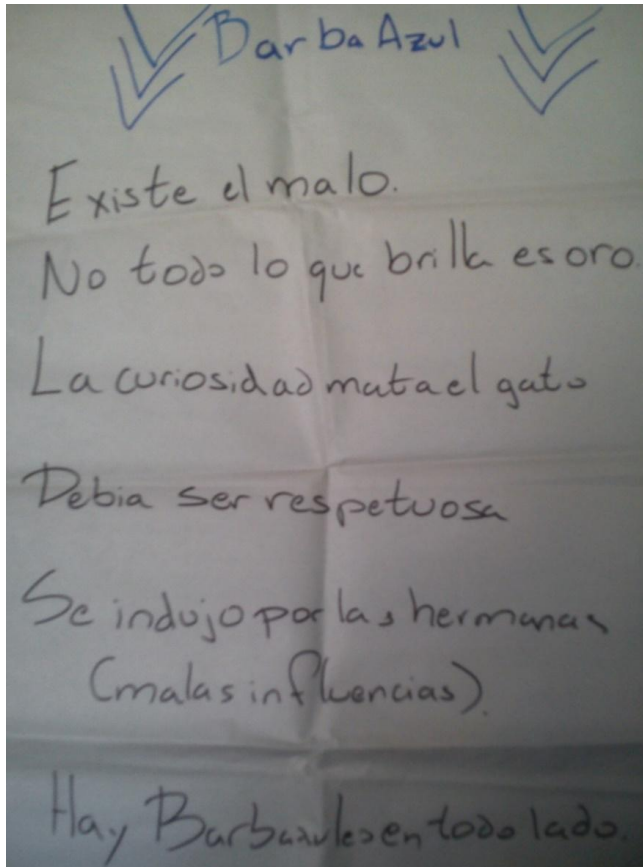 Barba Azul
Existe el malo.
No todo lo que brilla es oro.
La curiosidad mata el gato
Debia ser respetuosa
Se indujo por las hermanas
(malas influencias).
Hay Barbazules en todo lado.